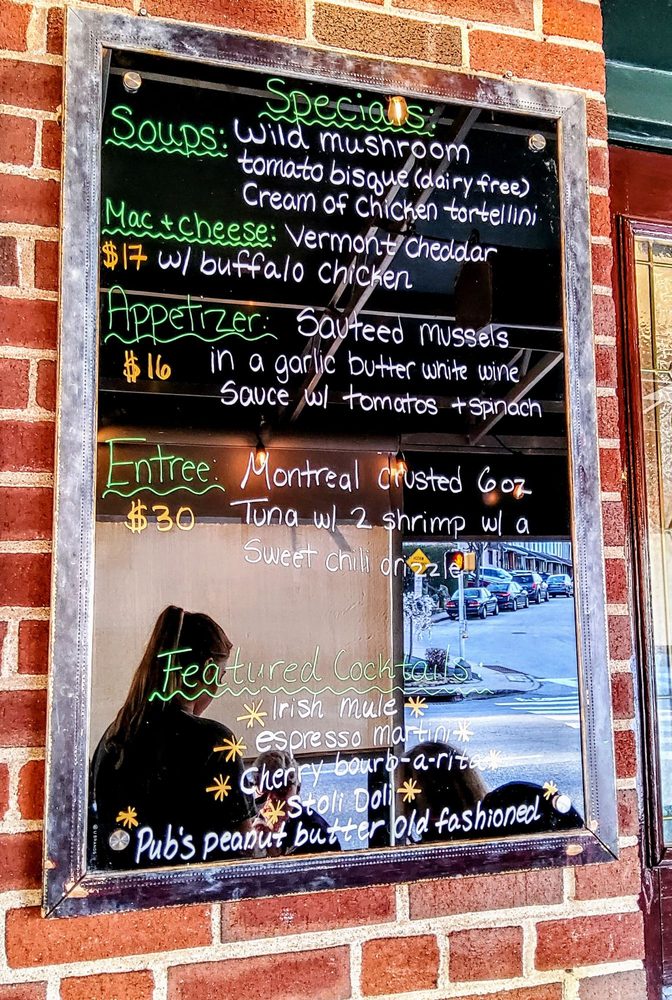 Specials:
Soups: Wild mushroom
tomato bisque (dairy free)
Cream of Chicken tortellini
Mac + cheese: Vermont cheddar
$17 w/ buffalo chicken
Appetizer: Sauteed mussels
$16 in a garlic butter white wine
Sauce w/ tomatos + spinach
Entree: Montreal crusted 6oz
$30 Tuna w/ 2 shrimp w/ a
Sweet chili drizzle
Featured Cocktails:
Irish mule
espresso martini
Cherry bourb-a-rita
Stoli Doli
Pub's peanut butter old fashioned